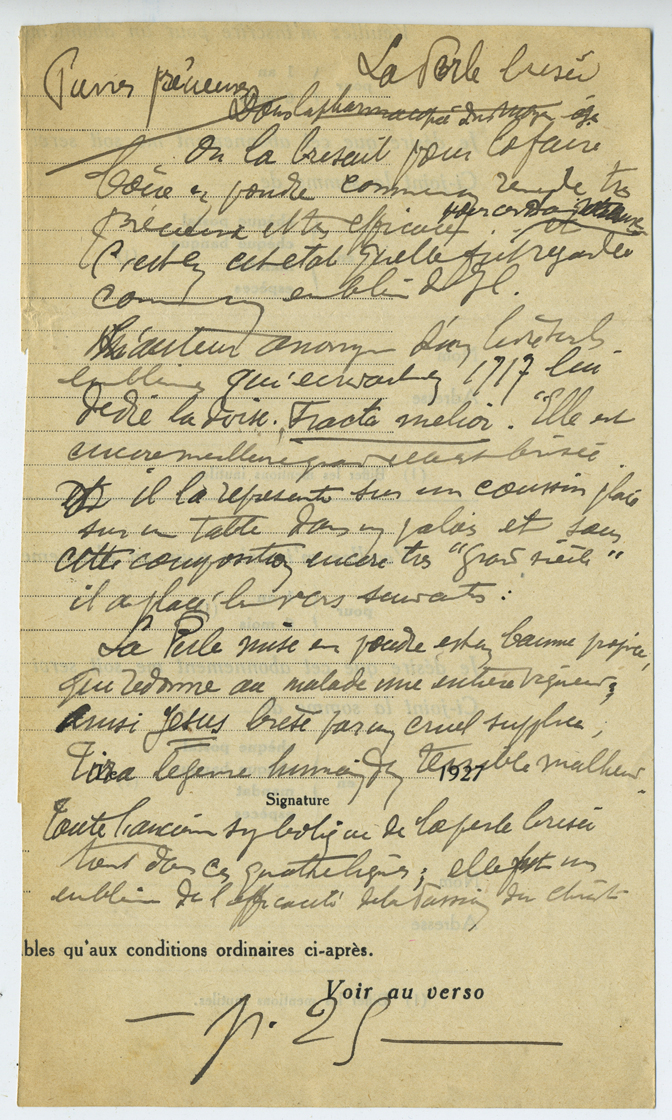 Pierres précieuses
La Perle brisée
Dans la pharmacopée du moyen âge
On la brisait pour la faire
boire en poudre comme un remède très
précieux et très efficace.
C'est en cet état qu'elle fut regardée
comme un emblème de
L'auteur anonyme d'un livre
emblèmes qui écrivait en 1717 lui
dédie la devise. Fracta melior. "Elle est
encore meilleure quand elle est brisée
il la représente sur un coussin placé
sur un table dans un palais et sous
cette composition encore très "grand siècle"
il a placé les vers suivants :
La Perle mise en poudre est un baume propice,
qui redonne au malade une entière vigueur ;
Ainsi Jésus brisé par un cruel supplice,
Tira le genre humain d'un terrible malheur.
1927
Signature
Toute l'ancienne symbolique de la perle brisée
tient dans ces quatre lignes ; elle fut un
emblème de l'efficacité de la Passion du Christ
bles qu'aux conditions ordinaires ci-après.
Voir au verso
— p. 25 —